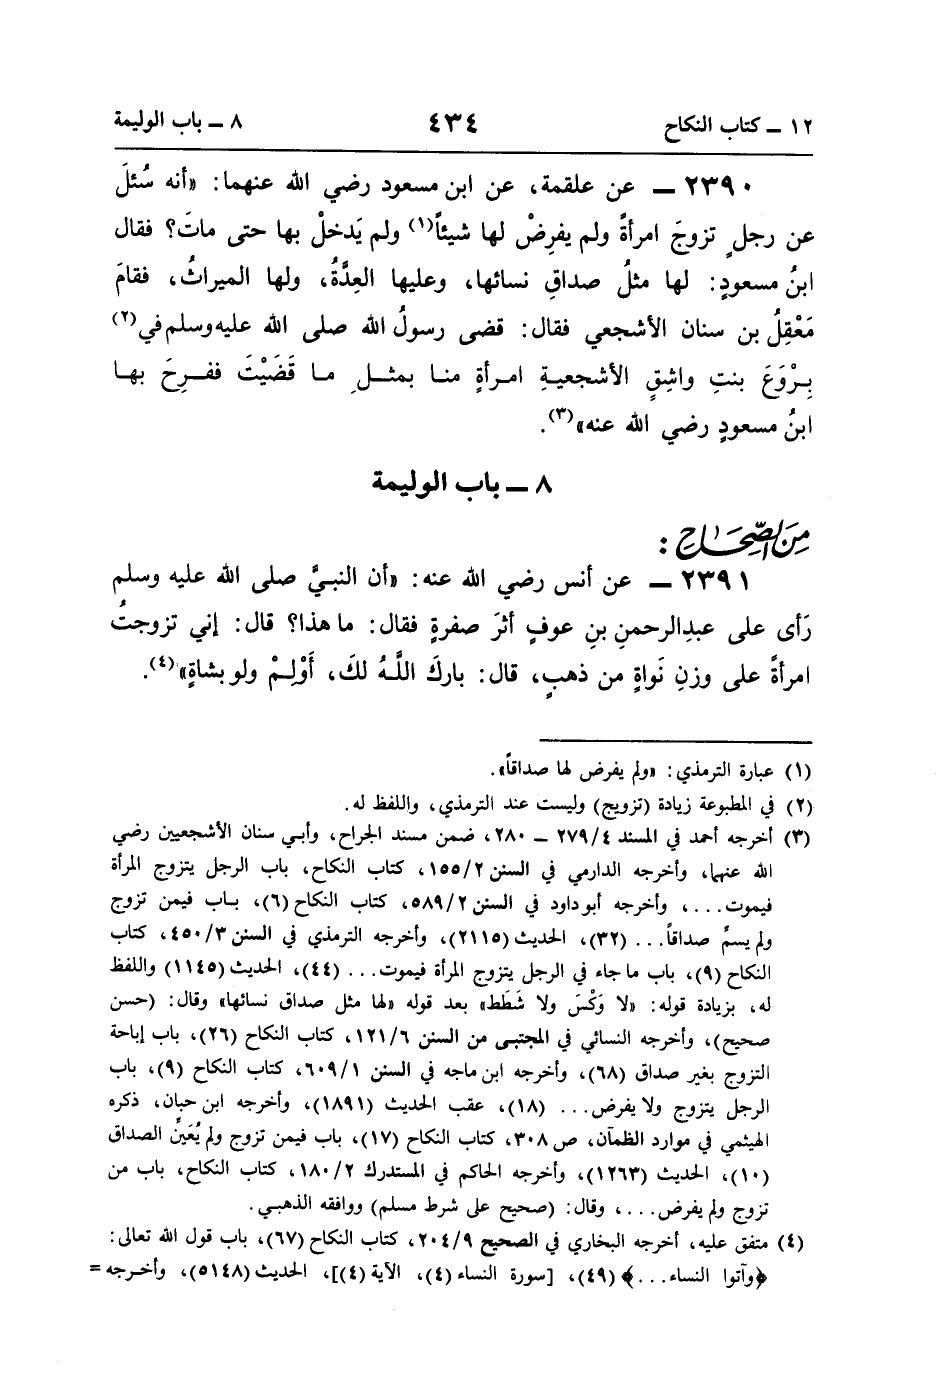 ١٢ ــ كتاب النكاح ٤٣٤ ٨ ــ باب الوليمة
٢٣٩٠ ــ عن علقمة، عن ابن مسعود رضي الله عنهما: «أنه سُئلَ
عن رجلٍ تزوجَ امرأةً ولم يفرِضْ لها شيئاً(١) ولم يَدخلْ بها حتى ماتَ؟ فقال
ابنُ مسعودٍ: لها مثلُ صداقِ نسائها، وعليها العِدَّةُ، ولها الميراثُ، فقامَ
مَعْقِلُ بن سنان الأشجعي فقال: قضى رسولُ الله صلى الله عليه وسلم في(٢)
بِرْوَعَ بنتِ واشِقٍ الأشجعيةِ امرأةٍ منا بمثلِ ما قَضَيْتَ ففرِحَ بها
ابنُ مسعودٍ رضي الله عنه»(٣).
٨ ــ باب الوليمة
مِنَ الصِّحَاحِ:
٢٣٩١ ــ عن أنس رضي الله عنه: «أن النبيَّ صلى الله عليه وسلم
رَأى على عبدِالرحمنِ بنِ عوفٍ أثرَ صفرةٍ فقال: ما هذا؟ قال: إني تزوجتُ
امرأةً على وزنِ نَواةٍ من ذهبٍ، قال: باركَ اللَّهُ لكَ، أَوْلِمْ ولو بشاةٍ»(٤).
(١) عبارة الترمذي: «ولم يفرض لها صداقاً».
(٢) في المطبوعة زيادة (تزويج) وليست عند الترمذي، واللفظ له.
(٣) أخرجه أحمد في المسند ٢٧٩/٤ ــ ٢٨٠، ضمن مسند الجراح، وأبي سنان الأشجعيين رضي
الله عنهما، وأخرجه الدارمي في السنن ١٥٥/٢، كتاب النكاح، باب الرجل يتزوج المرأة
فيموت...، وأخرجه أبو داود في السنن ٥٨٩/٢، كتاب النكاح (٦)، باب فيمن تزوج
ولم يسمِّ صداقاً... (٣٢)، الحديث (٢١١٥)، وأخرجه الترمذي في السنن ٤٥٠/٣، كتاب
النكاح (٩)، باب ما جاء في الرجل يتزوج المرأة فيموت... (٤٤)، الحديث (١١٤٥) واللفظ
له، بزيادة قوله: «لا وَكْسَ ولا شَطَط» بعد قوله «لها مثل صداق نسائها» وقال: (حسن
صحيح)، وأخرجه النسائي في المجتبى من السنن ١٢١/٦، كتاب النكاح (٢٦)، باب إباحة
التزوج بغير صداق (٦٨)، وأخرجه ابن ماجه في السنن ٦٠٩/١، كتاب النكاح (٩)، باب
الرجل يتزوج ولا يفرض... (١٨)، عقب الحديث (١٨٩١)، وأخرجه ابن حبان، ذكره
الهيثمي في موارد الظمآن، ص ٣٠٨، كتاب النكاح (١٧)، باب فيمن تزوج ولم يُعَيِّن الصداق
(١٠)، الحديث (١٢٦٣)، وأخرجه الحاكم في المستدرك ١٨٠/٢، كتاب النكاح، باب من
تزوج ولم يفرض...، وقال: (صحيح على شرط مسلم) ووافقه الذهبي.
(٤) متفق عليه، أخرجه البخاري في الصحيح ٢٠٤/٩، كتاب النكاح (٦٧)، باب قول الله تعالى:
﴿وآتوا النساء...﴾ (٤٩)، [سورة النساء (٤)، الآية (٤)]، الحديث (٥١٤٨)، وأخرجه =